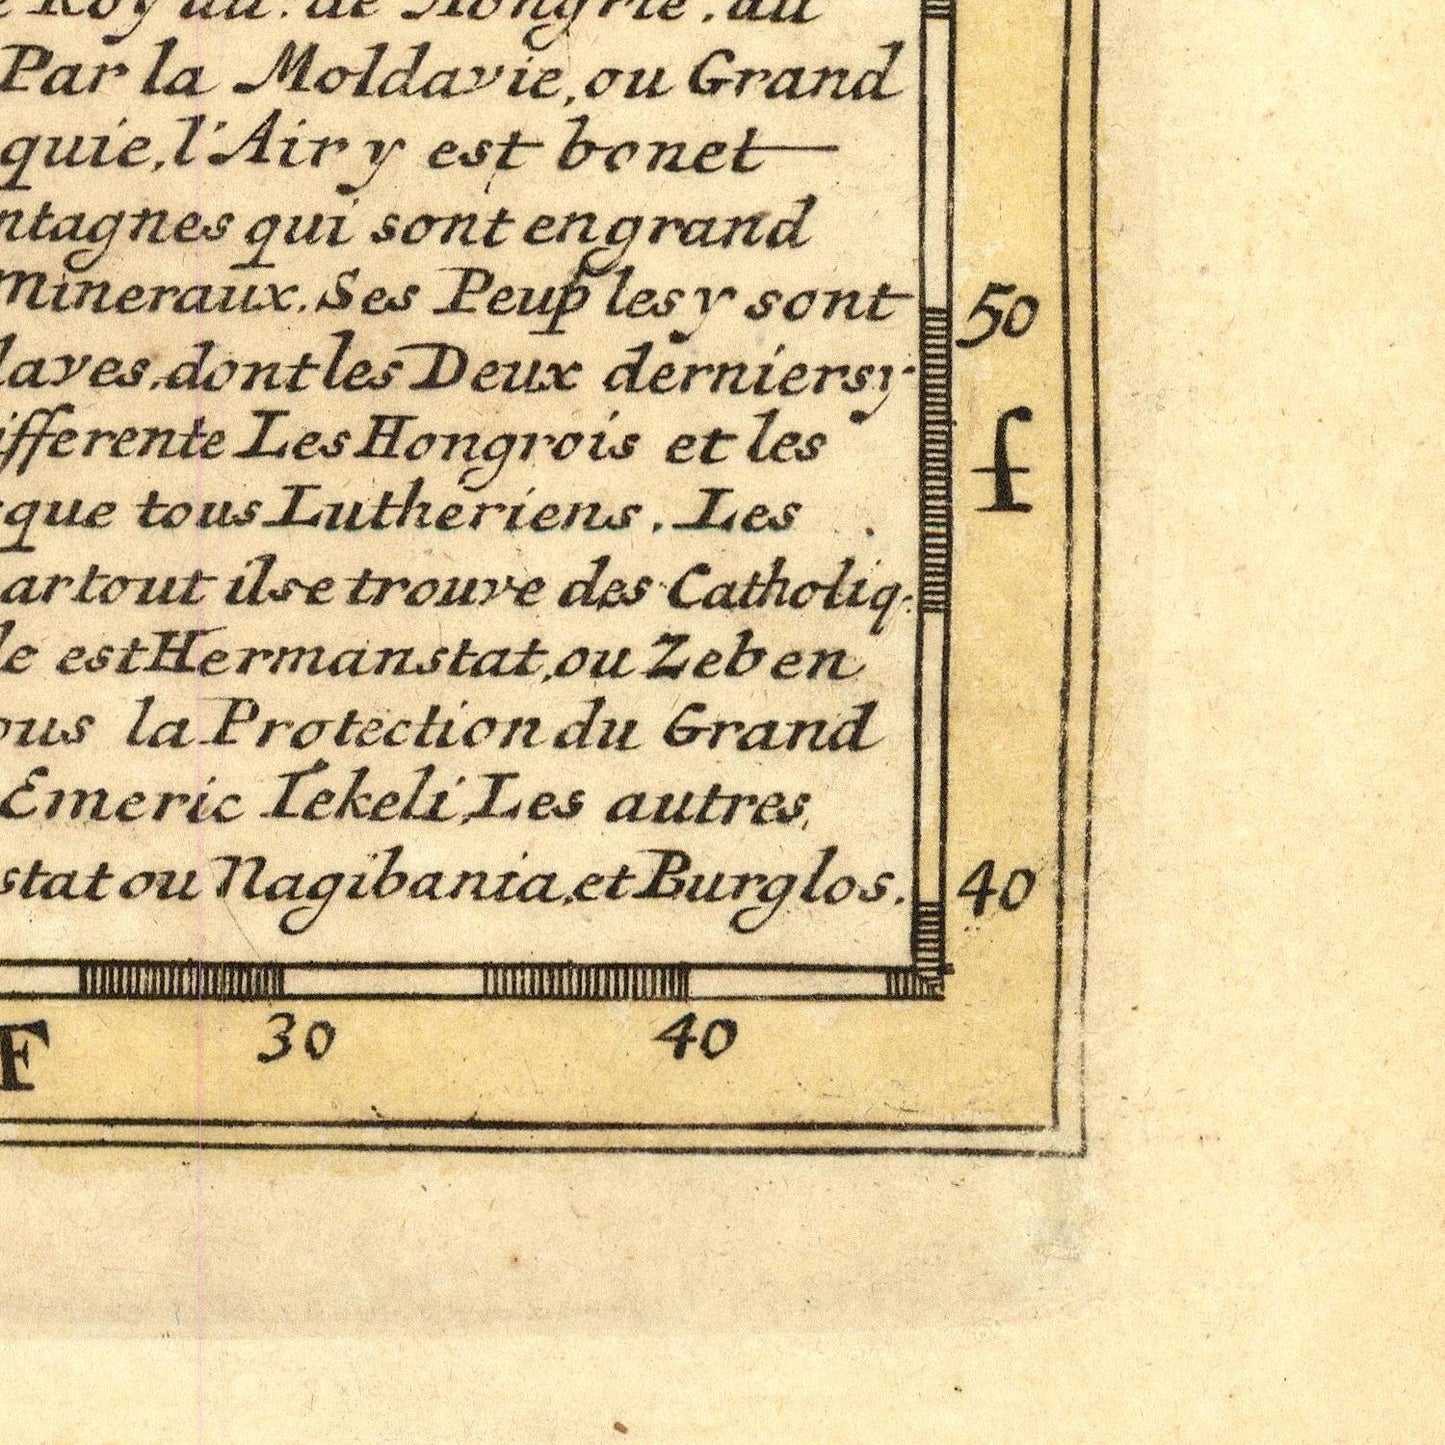 Royau. de Hongrie. au
Par la Moldavie, ou Grand
quie, l'Air y est bonet
ntagnes qui sont en grand
mineraux. Ses Peuples y sont
50
laves. dont les Deux derniers y
ifferente Les Hongrois et les
f
que tous Lutheriens. Les
artout il se trouve des Catholiq.
le est Hermanstat, ou Zeben
ous la Protection du Grand
Emeric Tekeli, Les autres,
stat ou Nagibania, et Burglos.
40
30 40
F